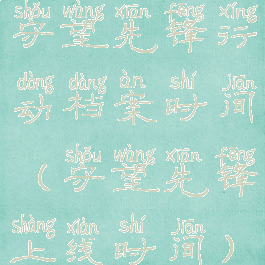 shǒu wàng xiān fēng xíng
守望先锋行
dòng dàng àn shí jiān
动档案时间
shǒu wàng xiān fēng
（守望先锋
shàng xiàn shí jiān
上线时间）